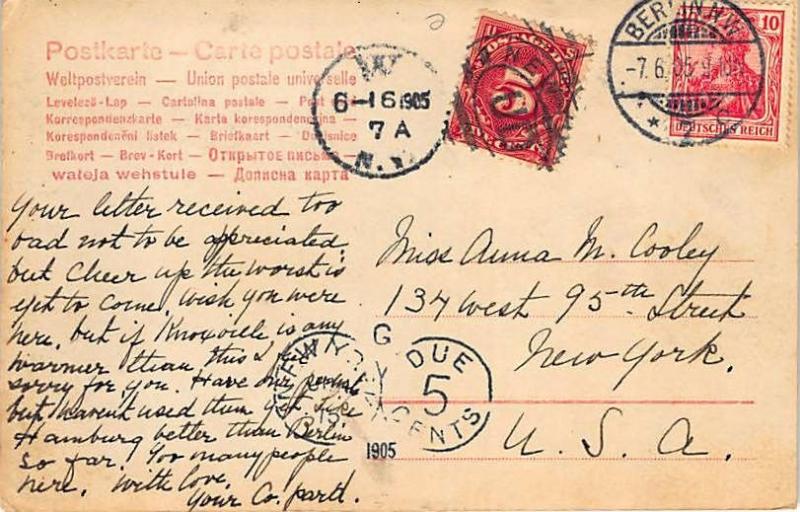 Postkarte — Carte postale
Weltpostverein — Union postale universelle
Levelező-Lap — Cartolina postale — Post
Korrespondenzkarte — Karta korespondencyjna —
Korespondenční lístek — Briefkaart —
Brefkort — Brev-Kort — Открытое письмо
— Дописна карта
N.Y.
6-16 1905
7 A
POSTAGE DUE
5
NEW
BERLIN N.W.
-7.6.05.9-10
* 7
10
DEUTSCHES REICH
Your letter received too
bad not to be appreciated,
but cheer up the worst is
yet to come, wish you were
here, but if Knoxville is any
warmer than this I feel
sorry for you. Have our permits
but haven't used them yet. Like
Hamburg better than Berlin
so far. Too many people
here. With love,
Your Co. part.
Miss Anna M. Cooley
137 West 95th Street
New York.
U. S. A.
G
DUE
5
CENTS
N.Y.
1905